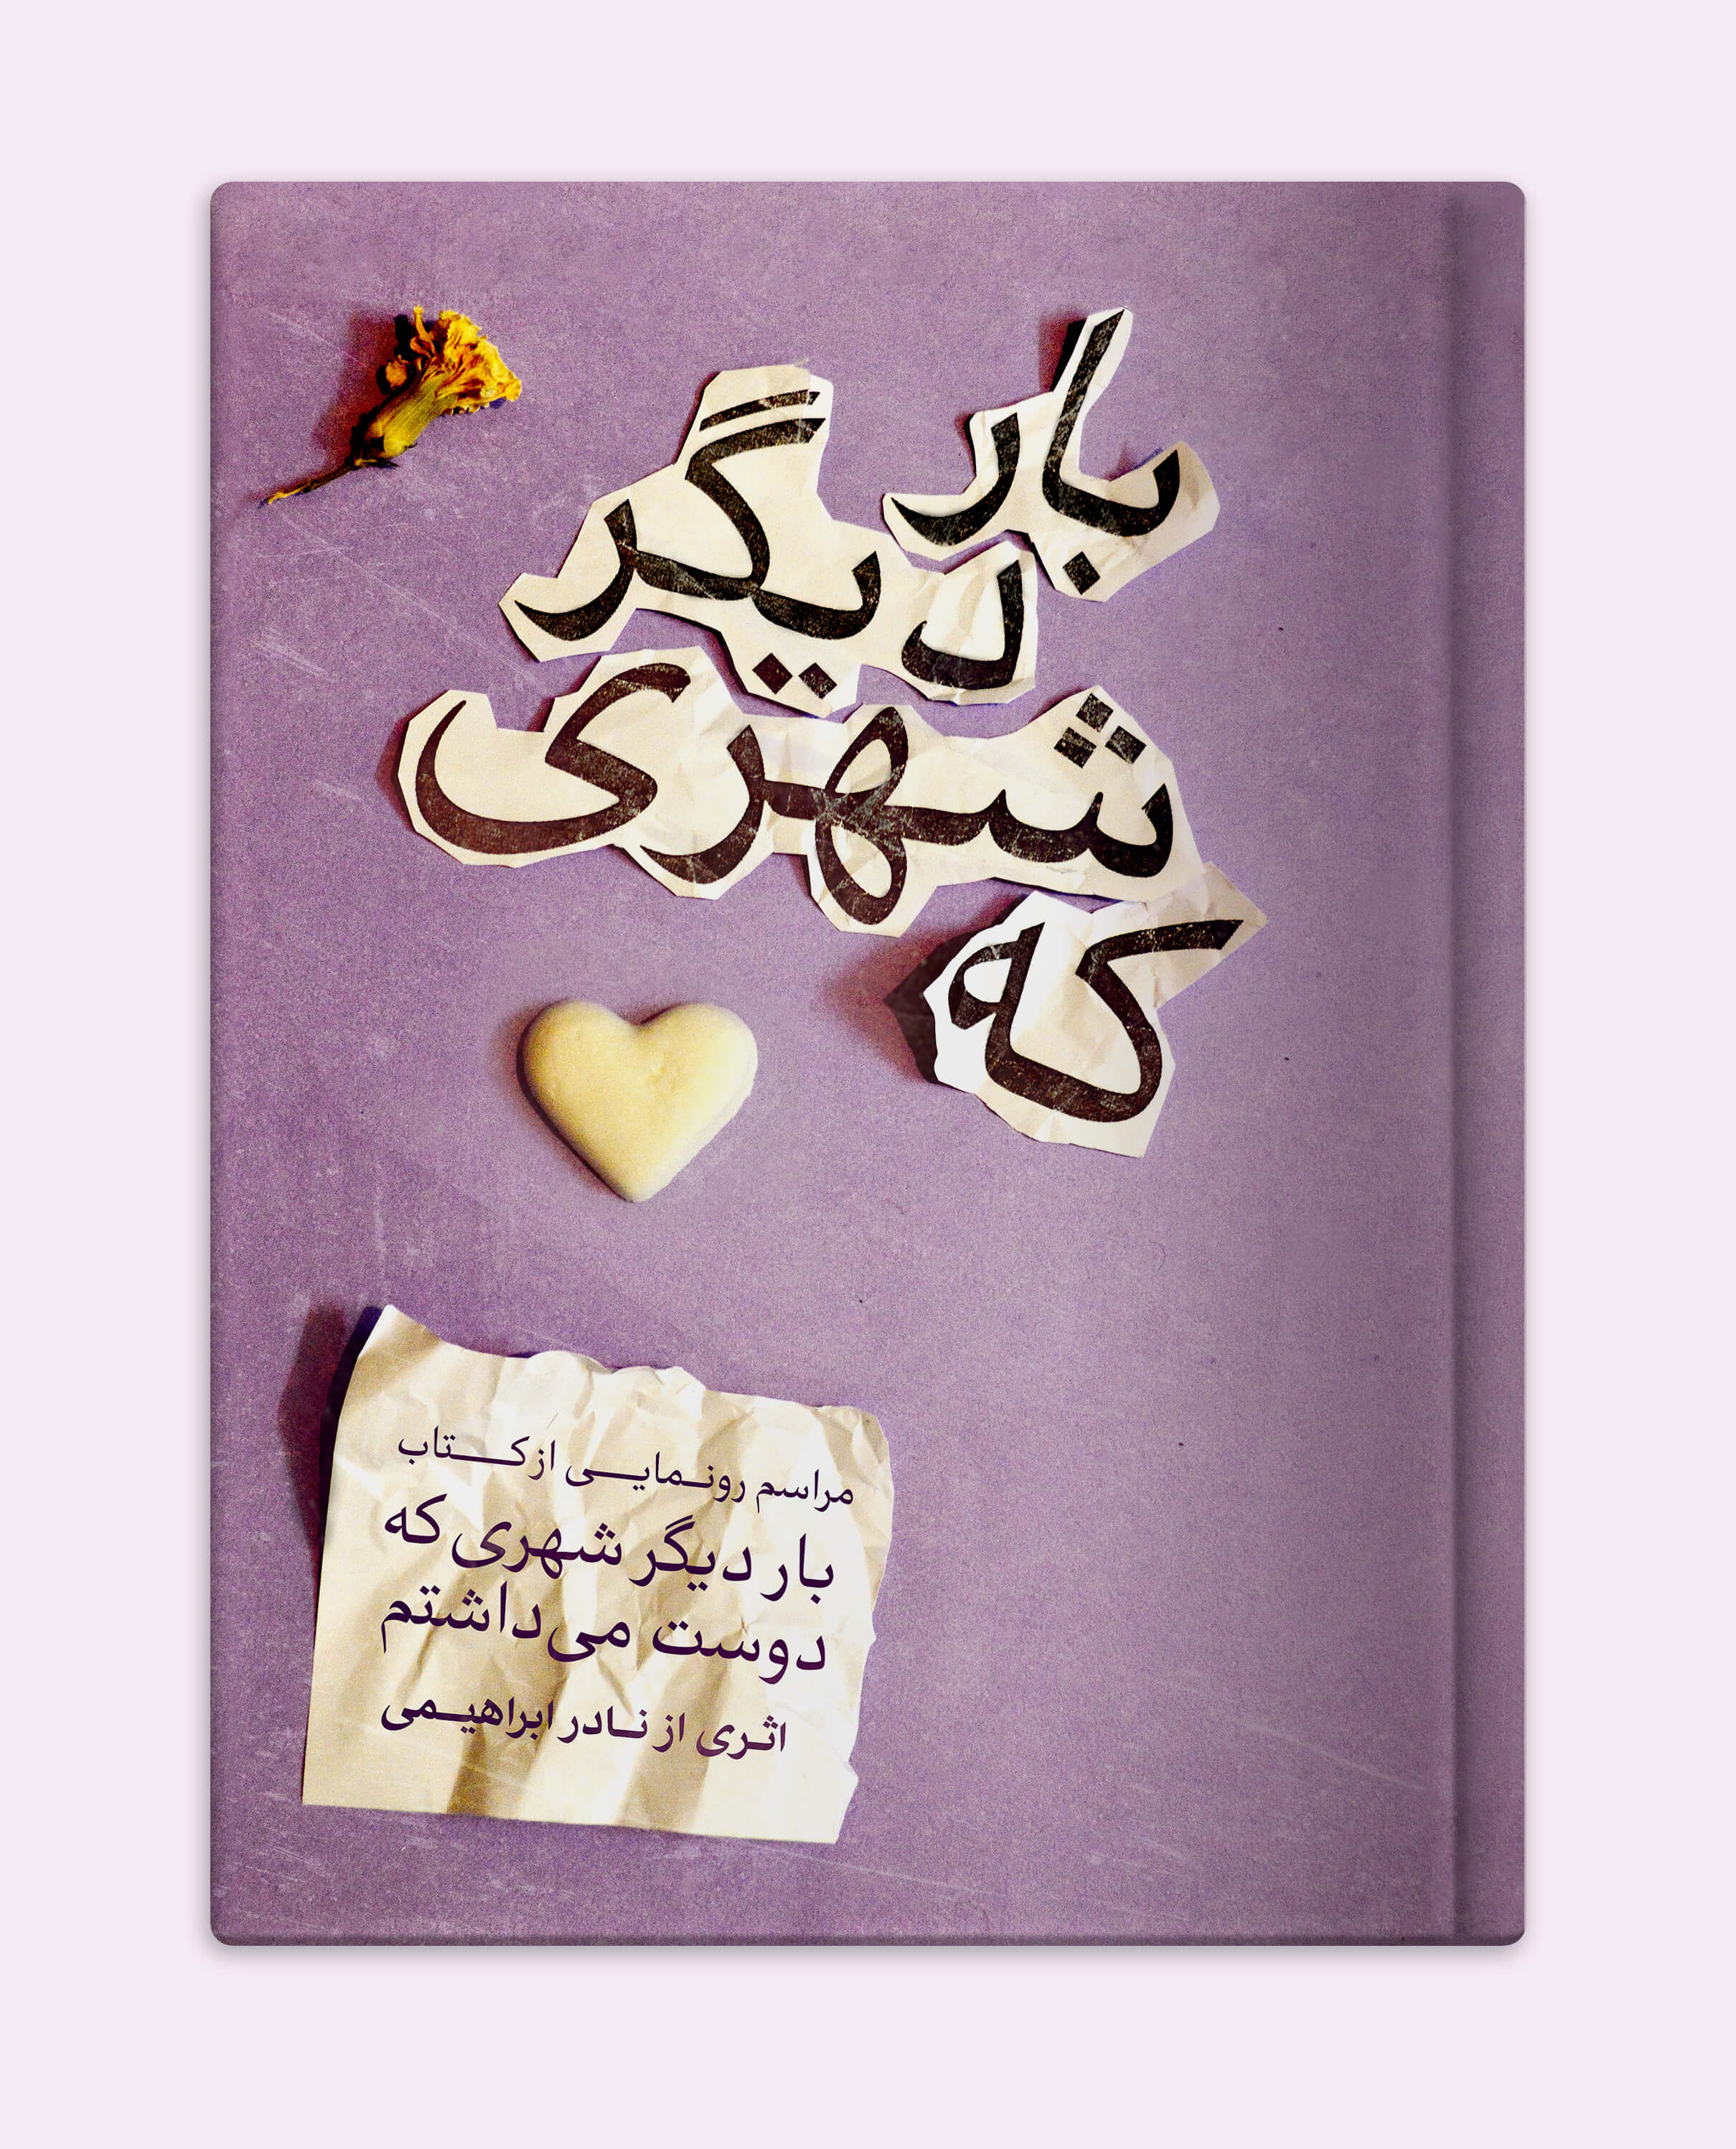 بار
دیگر
شهری
که
مراسم رونمایی از کتاب
بار دیگر شهری که
دوست می‌داشتم
اثری از نادر ابراهیمی